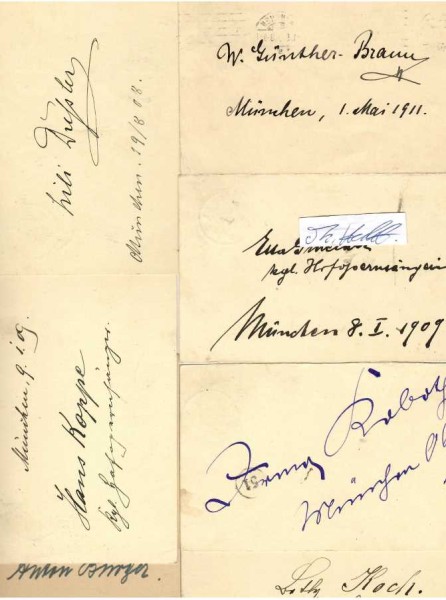 Lili Dressler
München. 29/8 08.
W. Günther-Braun
München, 1. Mai 1911.
Ella
kgl. Hofopernsängerin
München 8. I. 1909
München 9. I. 09.
Hans Koppe
kgl. Hofopernsänger.
Irma Koboth
München
51
Anton Bürger.
Koch.